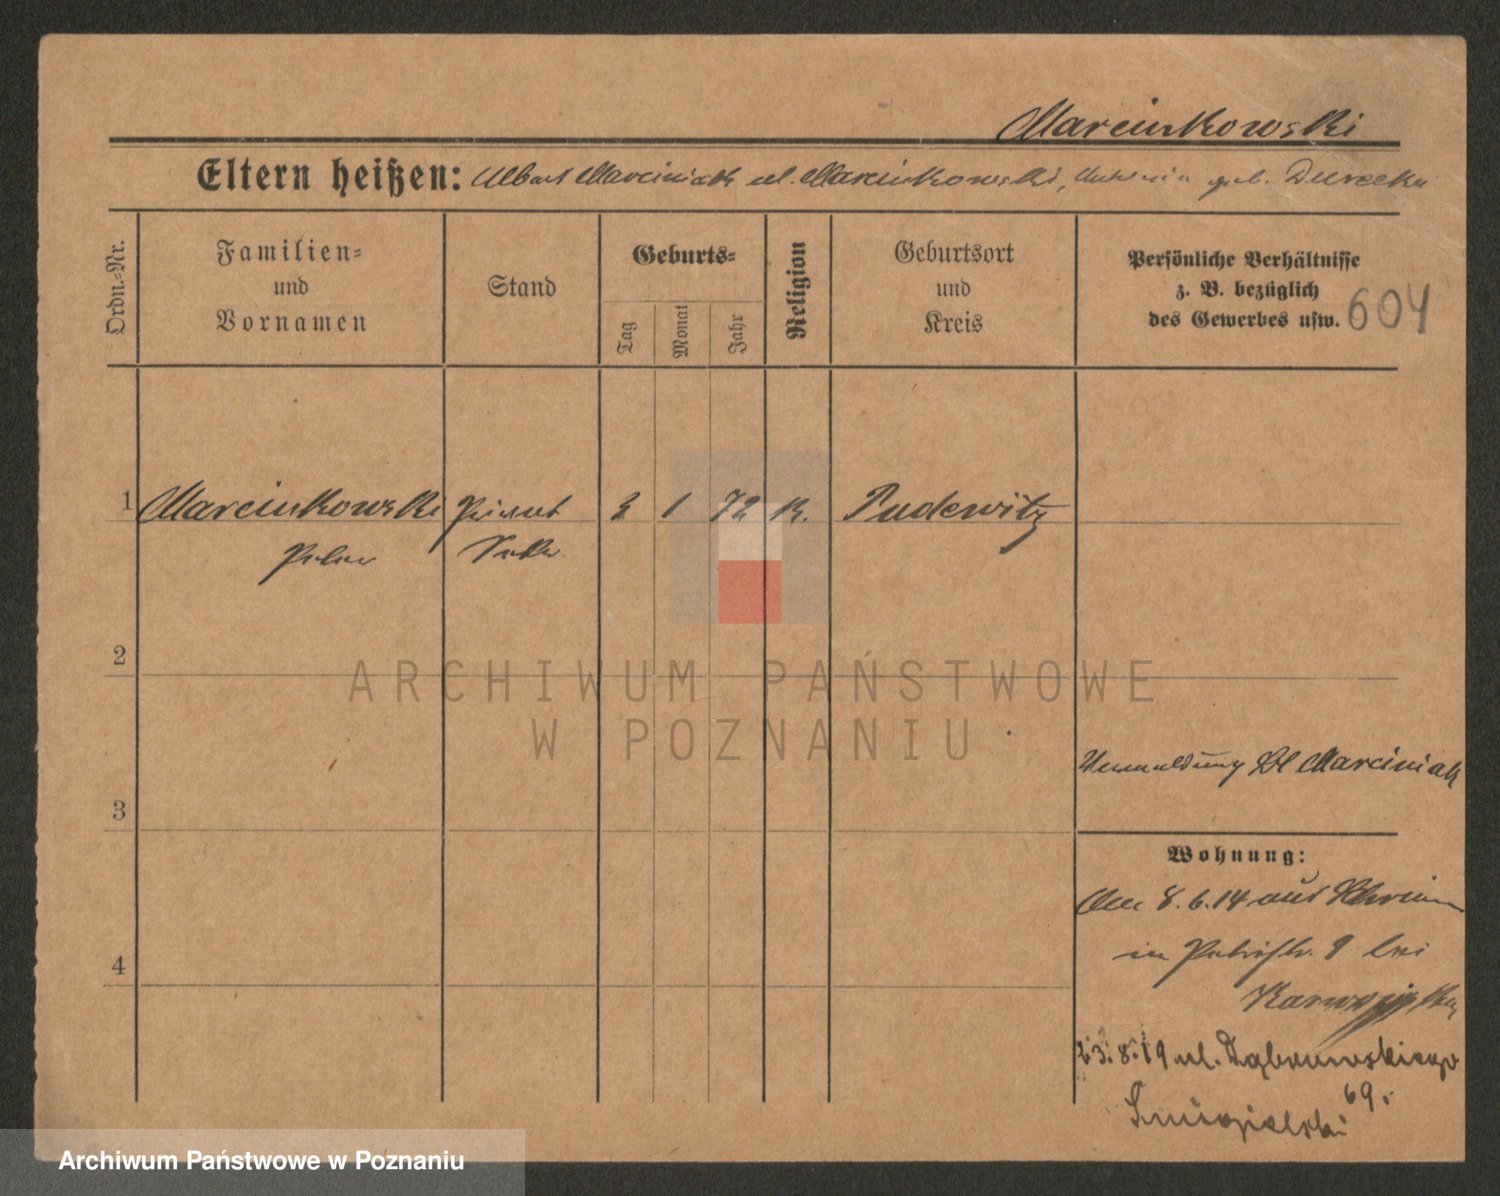 Marcinkowski
Eltern heißen: Albert Marciniak al. Marcinkowski, geb. Durecka
Ordn.-Nr.
Familien-
und
Vornamen
Stand
Geburts-
Tag
Monat
Jahr
Religion
Geburtsort
und
Kreis
Persönliche Verhältnisse
z. B. bezüglich
des Gewerbes usw. 604
1 Marcinkowski Privat 2 1 72 K. Pudewitz
Peter Sekr.
2
ARCHIWUM PAŃSTWOWE
W POZNANIU
Marciniak
3
Wohnung:
Am 8.6.14 aus Schrimm
in Petristr. 9 bei
4
23.8.19 ul. Dąbrowskiego
69.
Śmigielski
Archiwum Państwowe w Poznaniu